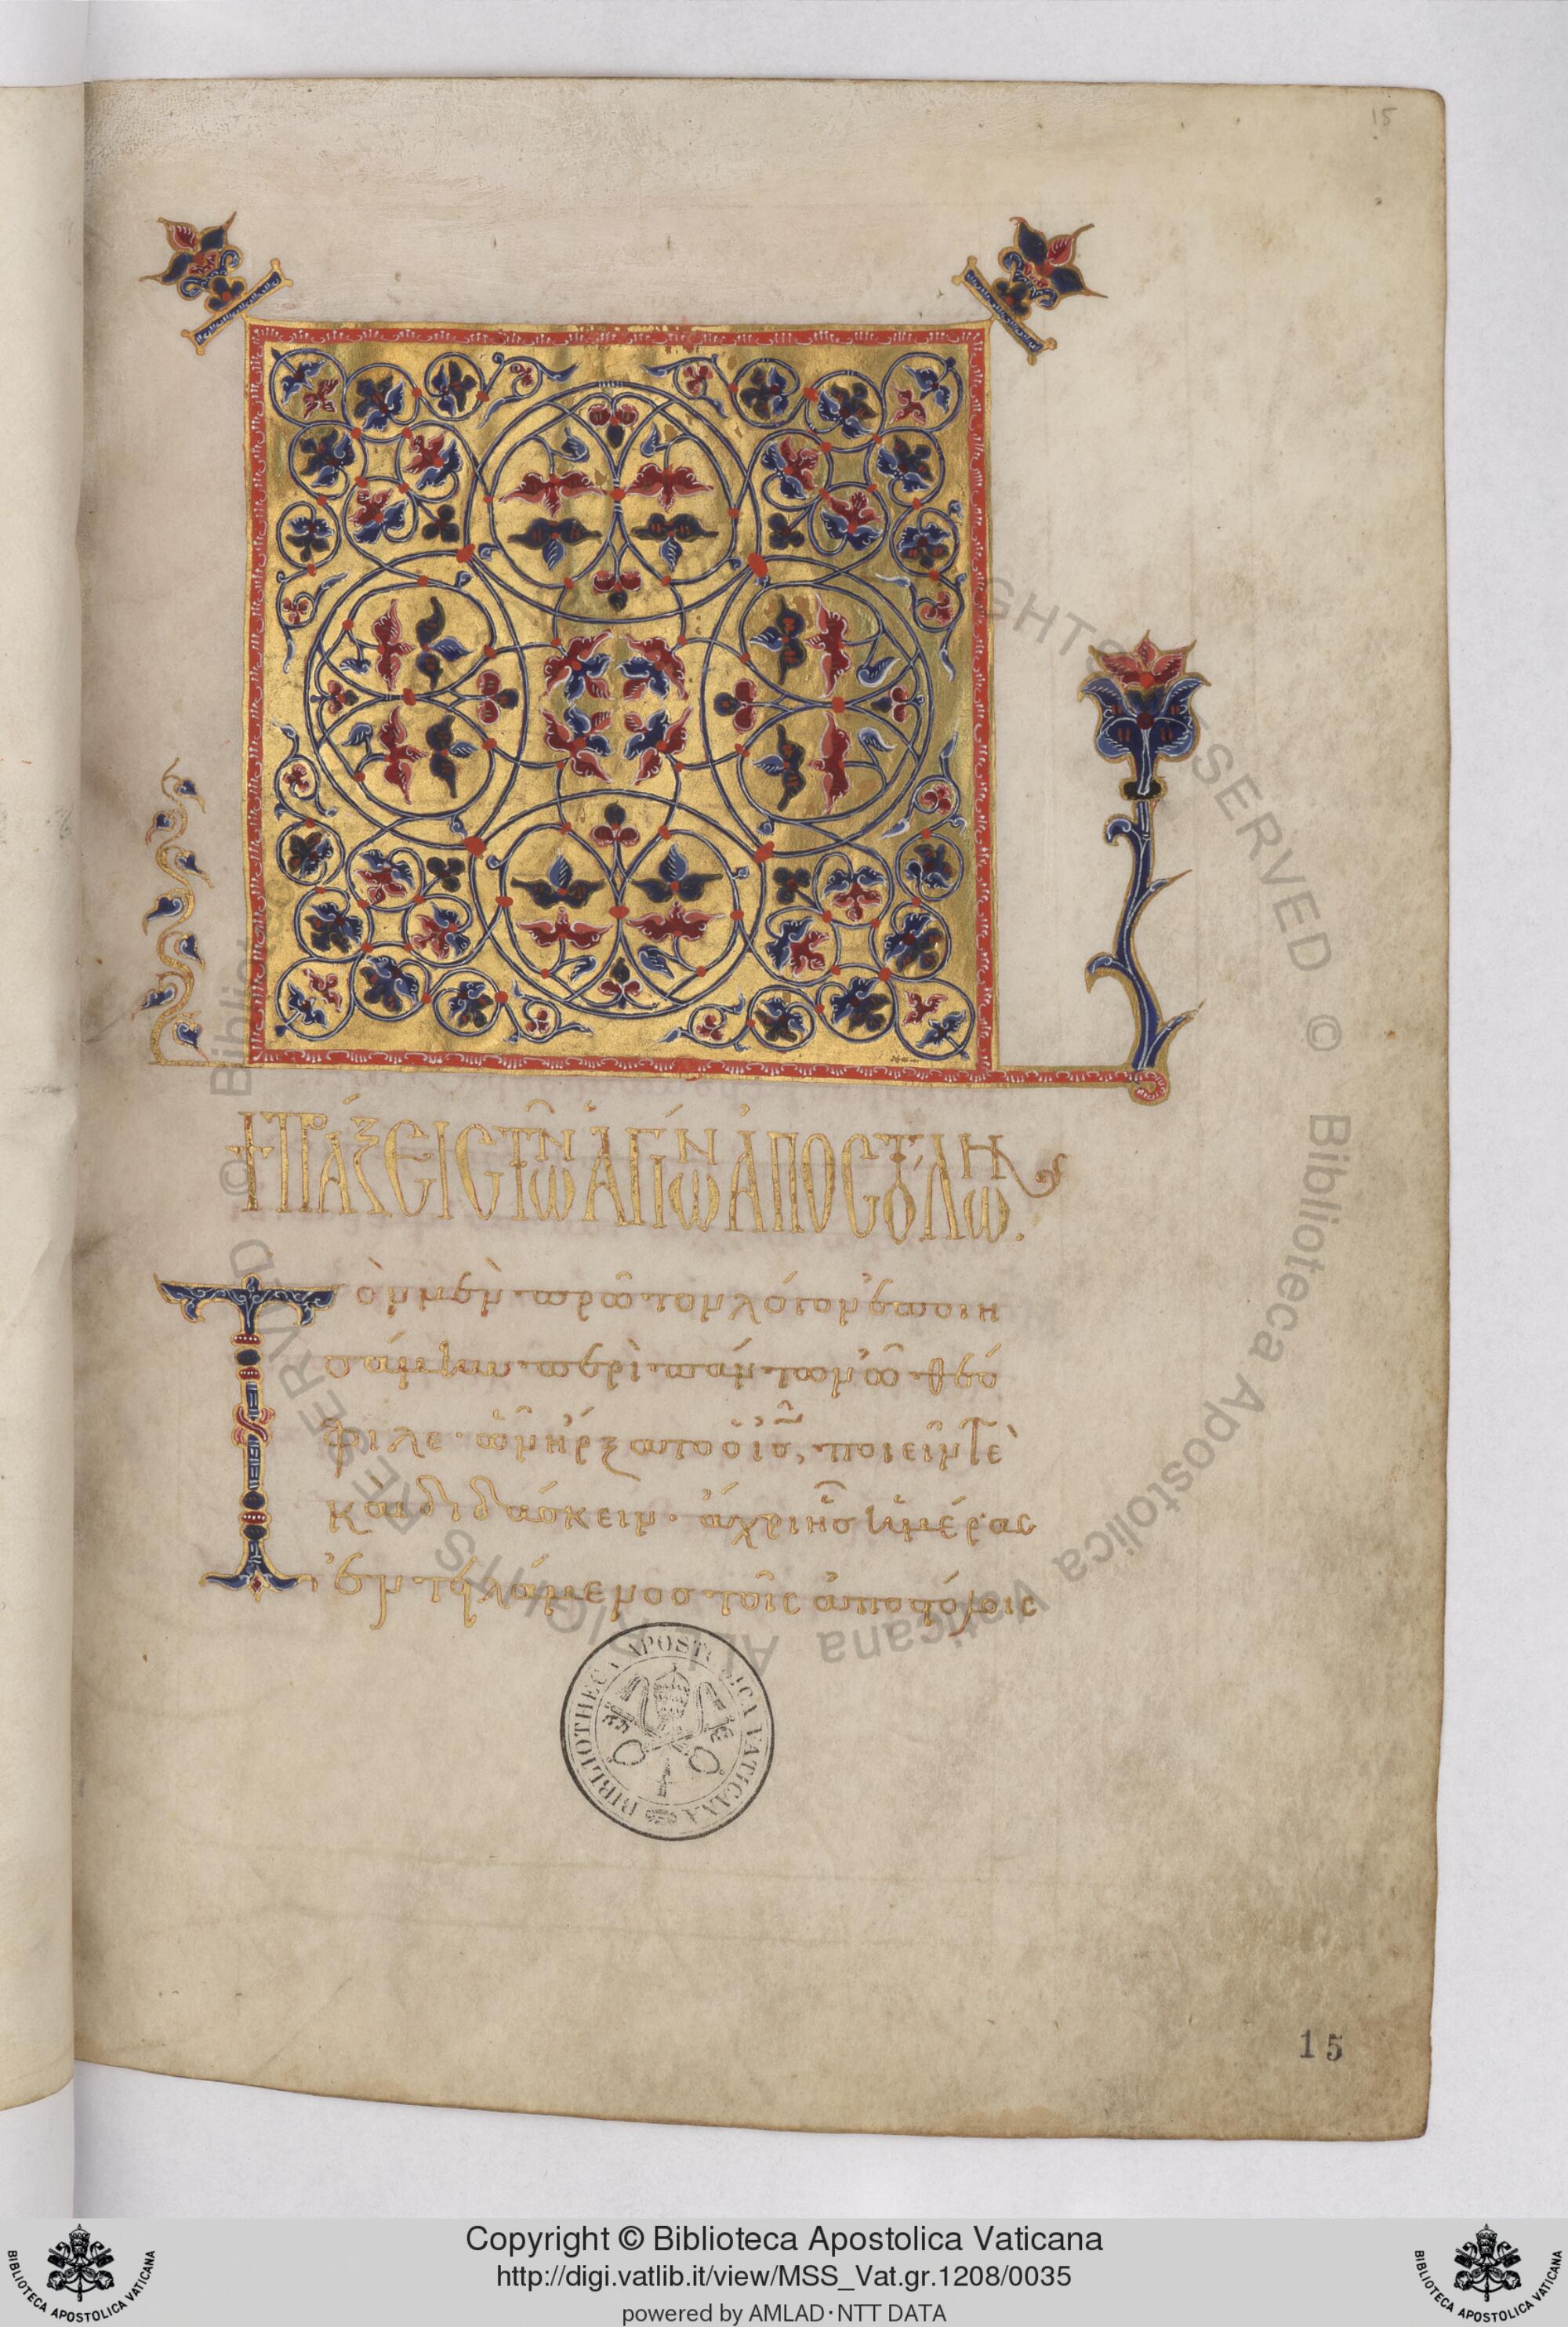 15
+ ΠΡΆΞΕΙΣ ΤῶΝ ἉΓΊωΝ ἈΠΟΣΤΌΛωΝ.
Τὸν μὲν πρῶτον λόγον ἐποιη
σάμην περὶ πάντων ὦ θεό
φιλε· ὧν ἤρξατο ὁ ις̅, ποιεῖν τὲ
και διδάσκειν· ἄχρι ἧς ἡμέρας
ἐντηλάμενος τοῖς ἀποστόλοις
BIBLIOTHECA APOSTOLICA VATICANA
15
© Biblioteca Apostolica Vaticana ALL RIGHTS RESERVED
Copyright © Biblioteca Apostolica Vaticana
http://digi.vatlib.it/view/MSS_Vat.gr.1208/0035
powered by AMLAD·NTT DATA
BIBLIOTECA APOSTOLICA VATICANA
BIBLIOTECA APOSTOLICA VATICANA